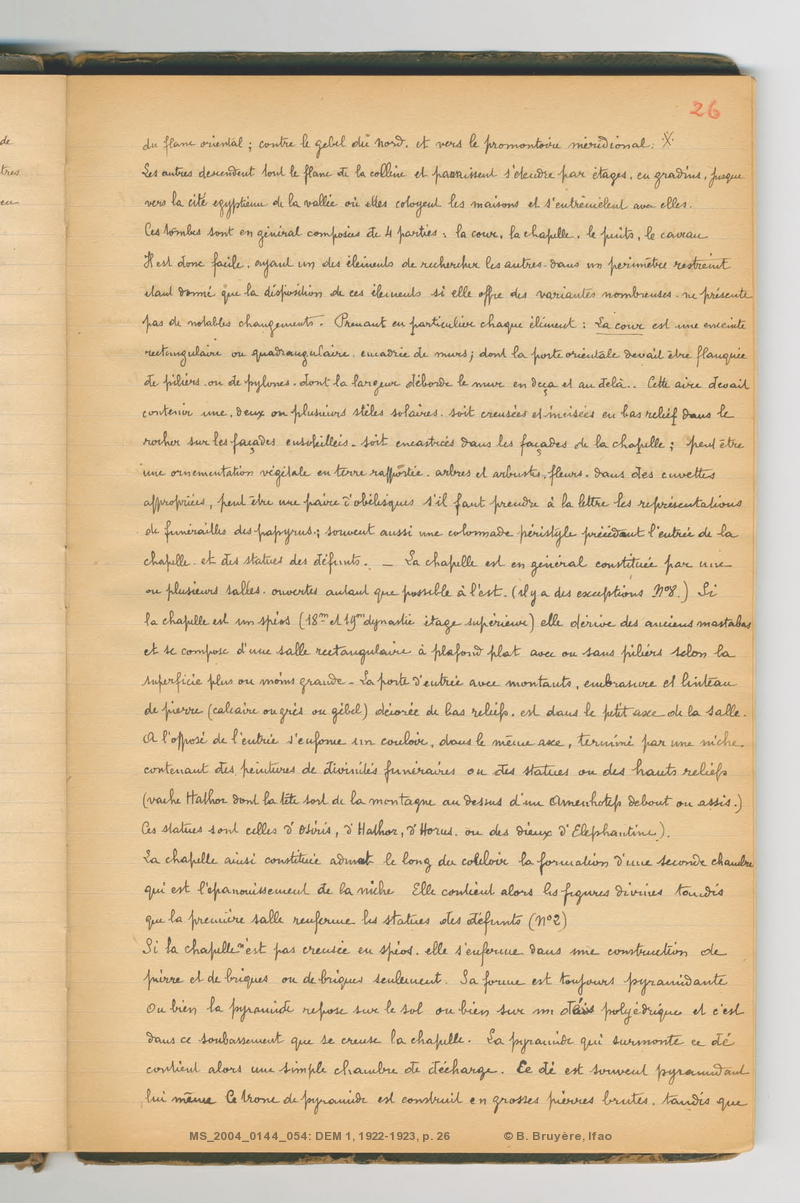 de
tres
en
26
du flanc oriental ; contre le gebel du nord. et vers le promontoire méridional. X
Les autres descendent tout le flanc de la colline et paraissent s'étendre par étages, en gradins, jusque
vers la cité egyptienne de la vallée où elles cotoyent les maisons et s'entremêlent avec elles.
Ces tombes sont en général composées de 4 parties : la cour, la chapelle, le puits, le caveau
Il est donc facile, ayant un des éléments de rechercher les autres dans un perimètre restreint
etant donné que la disposition de ces éléments si elle offre des variantes nombreuses ne présente
pas de notables changements. Prenant en particulier chaque élément : La cour est une enceinte
rectangulaire ou quadrangulaire, encadrée de murs ; dont la porte orientale devait être flanquée
de piliers ou de pylones dont la largeur déborde le mur en deça et au delà.. Cette aire devait
contenir une, deux ou plusieurs stèles solaires, soit creusées et incisées en bas relief dans le
rocher sur les façades ensoleillées - soit encastrées dans les façades de la chapelle ; peut être
une ornementation végétale en terre rapportée. arbres et arbustes, fleurs, dans des cuvettes
appropriées, peut être une paire d'obélisques s'il faut prendre à la lettre les représentations
de funérailles des papyrus ; souvent aussi une colonnade péristyle précédant l'entrée de la
chapelle et des statues des défunts. — La chapelle est en général constituée par une
ou plusieurs salles. ouvertes autant que possible à l'est. (il y a des exceptions N°8.) Si
la chapelle est un spéos (18me et 19me dynastie étage supérieur) elle dérive des anciens mastabas
et se compose d'une salle rectangulaire à plafond plat avec ou sans piliers selon la
superficie plus ou moins grande - La porte d'entrée avec montants, embrasure et linteau
de pierre (calcaire ou grès ou gébel) décorée de bas reliefs, est dans le petit axe de la salle.
A l'opposé de l'entrée s'enfonce un couloir, dans le même axe, terminé par une niche
contenant des peintures de divinités funéraires ou des statues ou des hauts reliefs
(vache Hathor dont la tête sort de la montagne au dessus d'un Amenhotep debout ou assis.)
Ces statues sont celles d'Osiris, d'Hathor, d'Horus. ou des dieux d'Elephantine).
La chapelle ainsi constituée admet le long du couloir la formation d'une seconde chambre
qui est l'epanouissement de la niche Elle contient alors les figures divines tandis
que la première salle renferme les statues des défunts (N°2)
Si la chapelle n'est pas creusée en spéos. elle s'enferme dans une construction de
pierre et de briques ou de briques seulement. Sa forme est toujours pyramidante
Ou bien la pyramide repose sur le sol ou bien sur un dais polyédrique et c'est
dans ce soubassement que se creuse la chapelle. La pyramide qui surmonte ce dé
contient alors une simple chambre de décharge. Ce dé est souvent pyramidant
lui même Ce tronc de pyramide est construit en grosses pierres brutes. tandis que
MS_2004_0144_054: DEM 1, 1922-1923, p. 26 © B. Bruyère, Ifao